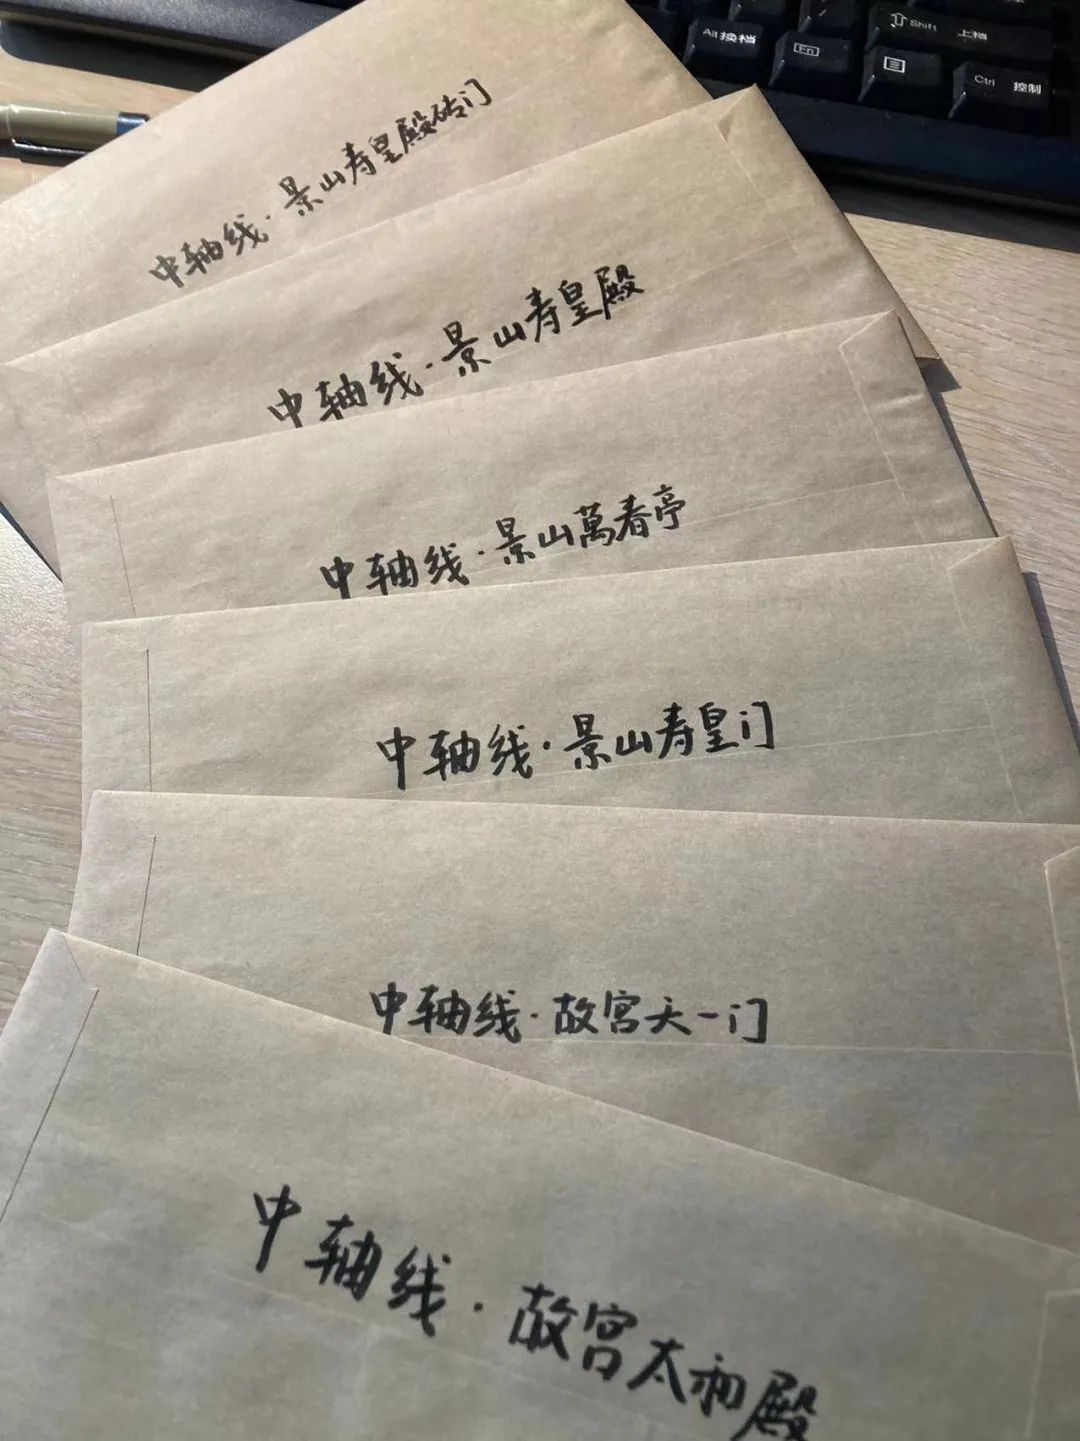 Shift 上档
Alt 换档
Fn
Ctrl 控制
中轴线·景山寿皇殿砖门
中轴线·景山寿皇殿
中轴线·景山萬春亭
中轴线·景山寿皇门
中轴线·故宫天一门
中轴线·故宫太和殿